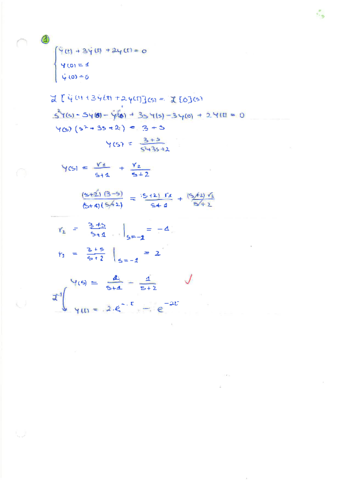 1
ÿ(t) + 3ẏ(t) + 2y(t) = 0
y(0) = 1
ẏ(0) = 0
ℒ[ÿ(t) + 3ẏ(t) + 2y(t)](s) = ℒ[0](s)
s²Y(s) - sy(0) - ẏ(0) + 3sY(s) - 3y(0) + 2Y(s) = 0
Y(s) (s² + 3s + 2) = 3 + s
Y(s) = 3 + s / s² + 3s + 2
Y(s) = r1 / s+1 + r2 / s+2
(s+2) (3+s) / (s+1) (s+2) = (s+2) r1 / s+1 + (s+2) r2 / s+2
r2 = 3+s / s+1 | s=-2 = -1
r1 = 3+s / s+2 | s=-1 = 2
Y(s) = 2 / s+1 - 1 / s+2
ℒ⁻¹
y(t) = 2·e^-t - e^-2t